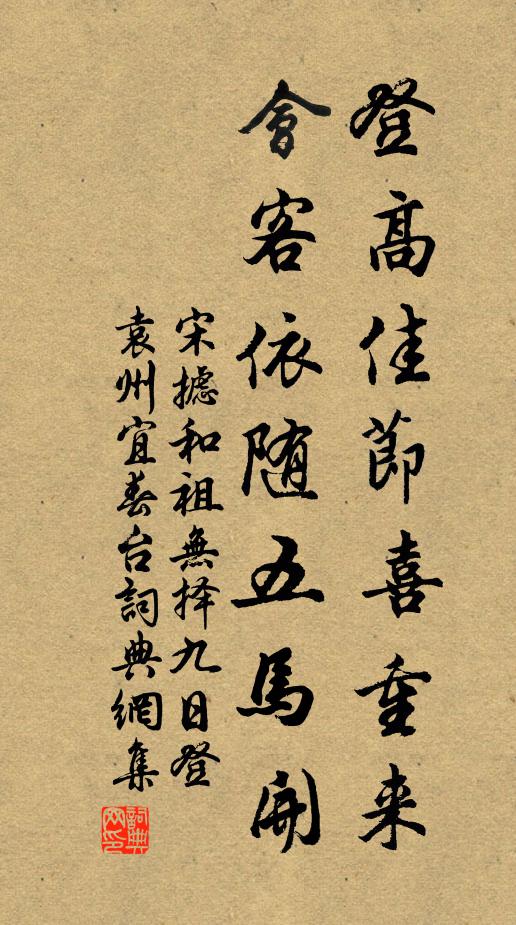 登高佳節喜重来
會客依随五馬開
宋摅和祖無择九日登
袁州宜春台詞典網集
詞典网印